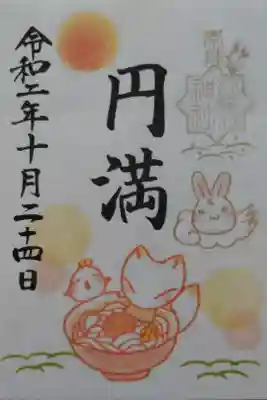 円満
令和二年十月二十四日